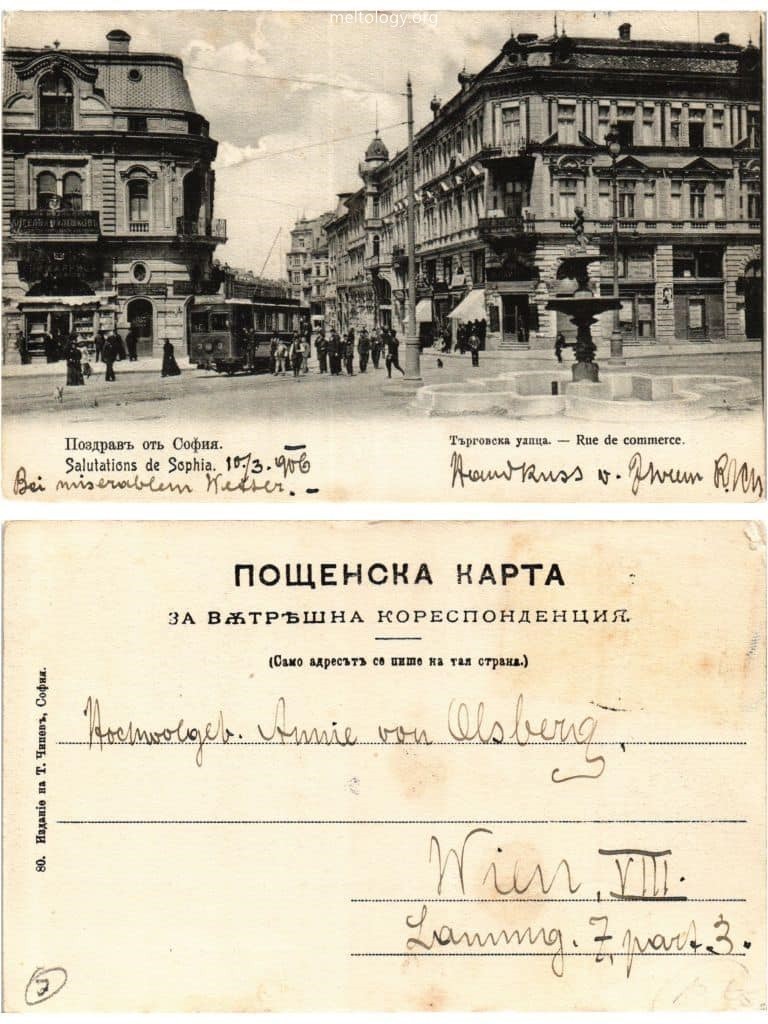 meltology.org
Поздравъ отъ София.
Salutations de Sophia. 10/3. 906
Bei miserablem Wetter. –
Търговска улица. — Rue de commerce.
Handkuss v. Ihrem
ПОЩЕНСКА КАРТА
ЗА ВѪТРѢШНА КОРЕСПОНДЕНЦИЯ.
(Само адресътъ се пише на тая страна.)
80. Издание на Т. Чипевъ, София.
Hochwolgeb. Annie von Olsberg,
Wien, VIII.
7, part. 3.
7